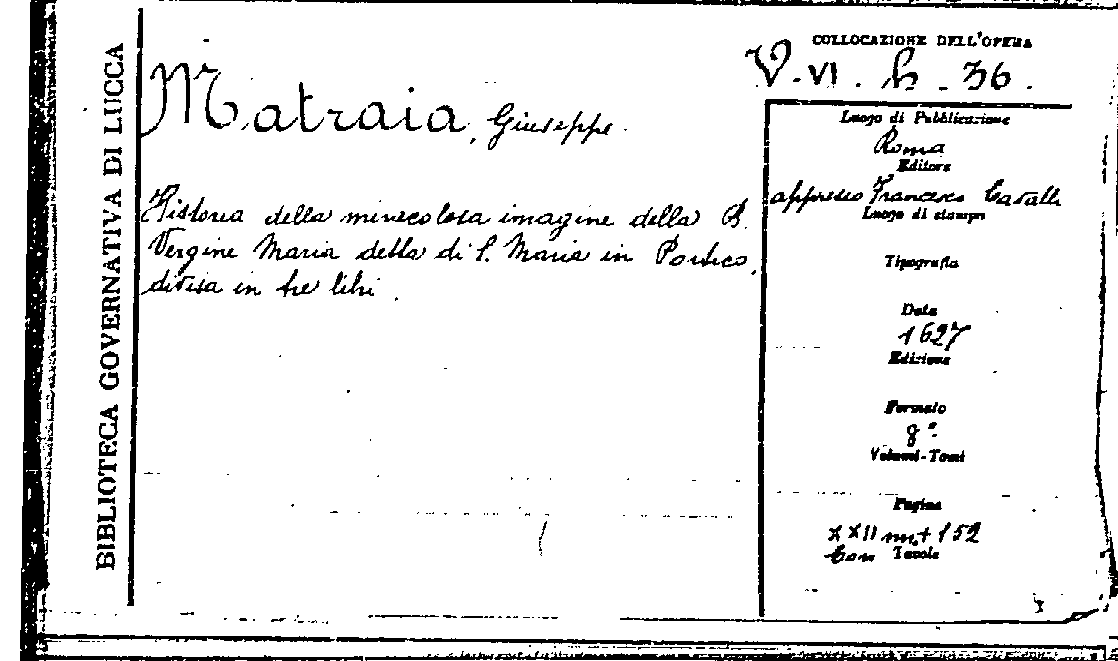 BIBLIOTECA GOVERNATIVA DI LUCCA
COLLOCAZIONE DELL'OPERA
V. VI. h. 36.
Matraia, Giuseppe.
Historia della miracolosa imagine della B.
Vergine Maria detta di S. Maria in Portico,
divisa in tre libri.
Luogo di Pubblicazione
Roma
Editore
appresso Francesco Cavalli
Luogo di stampa
Tipografia
Data
1627
Edizione
Formato
8°.
Volumi-Tomi
Pagine
XXII nn + 152
Con Tavole